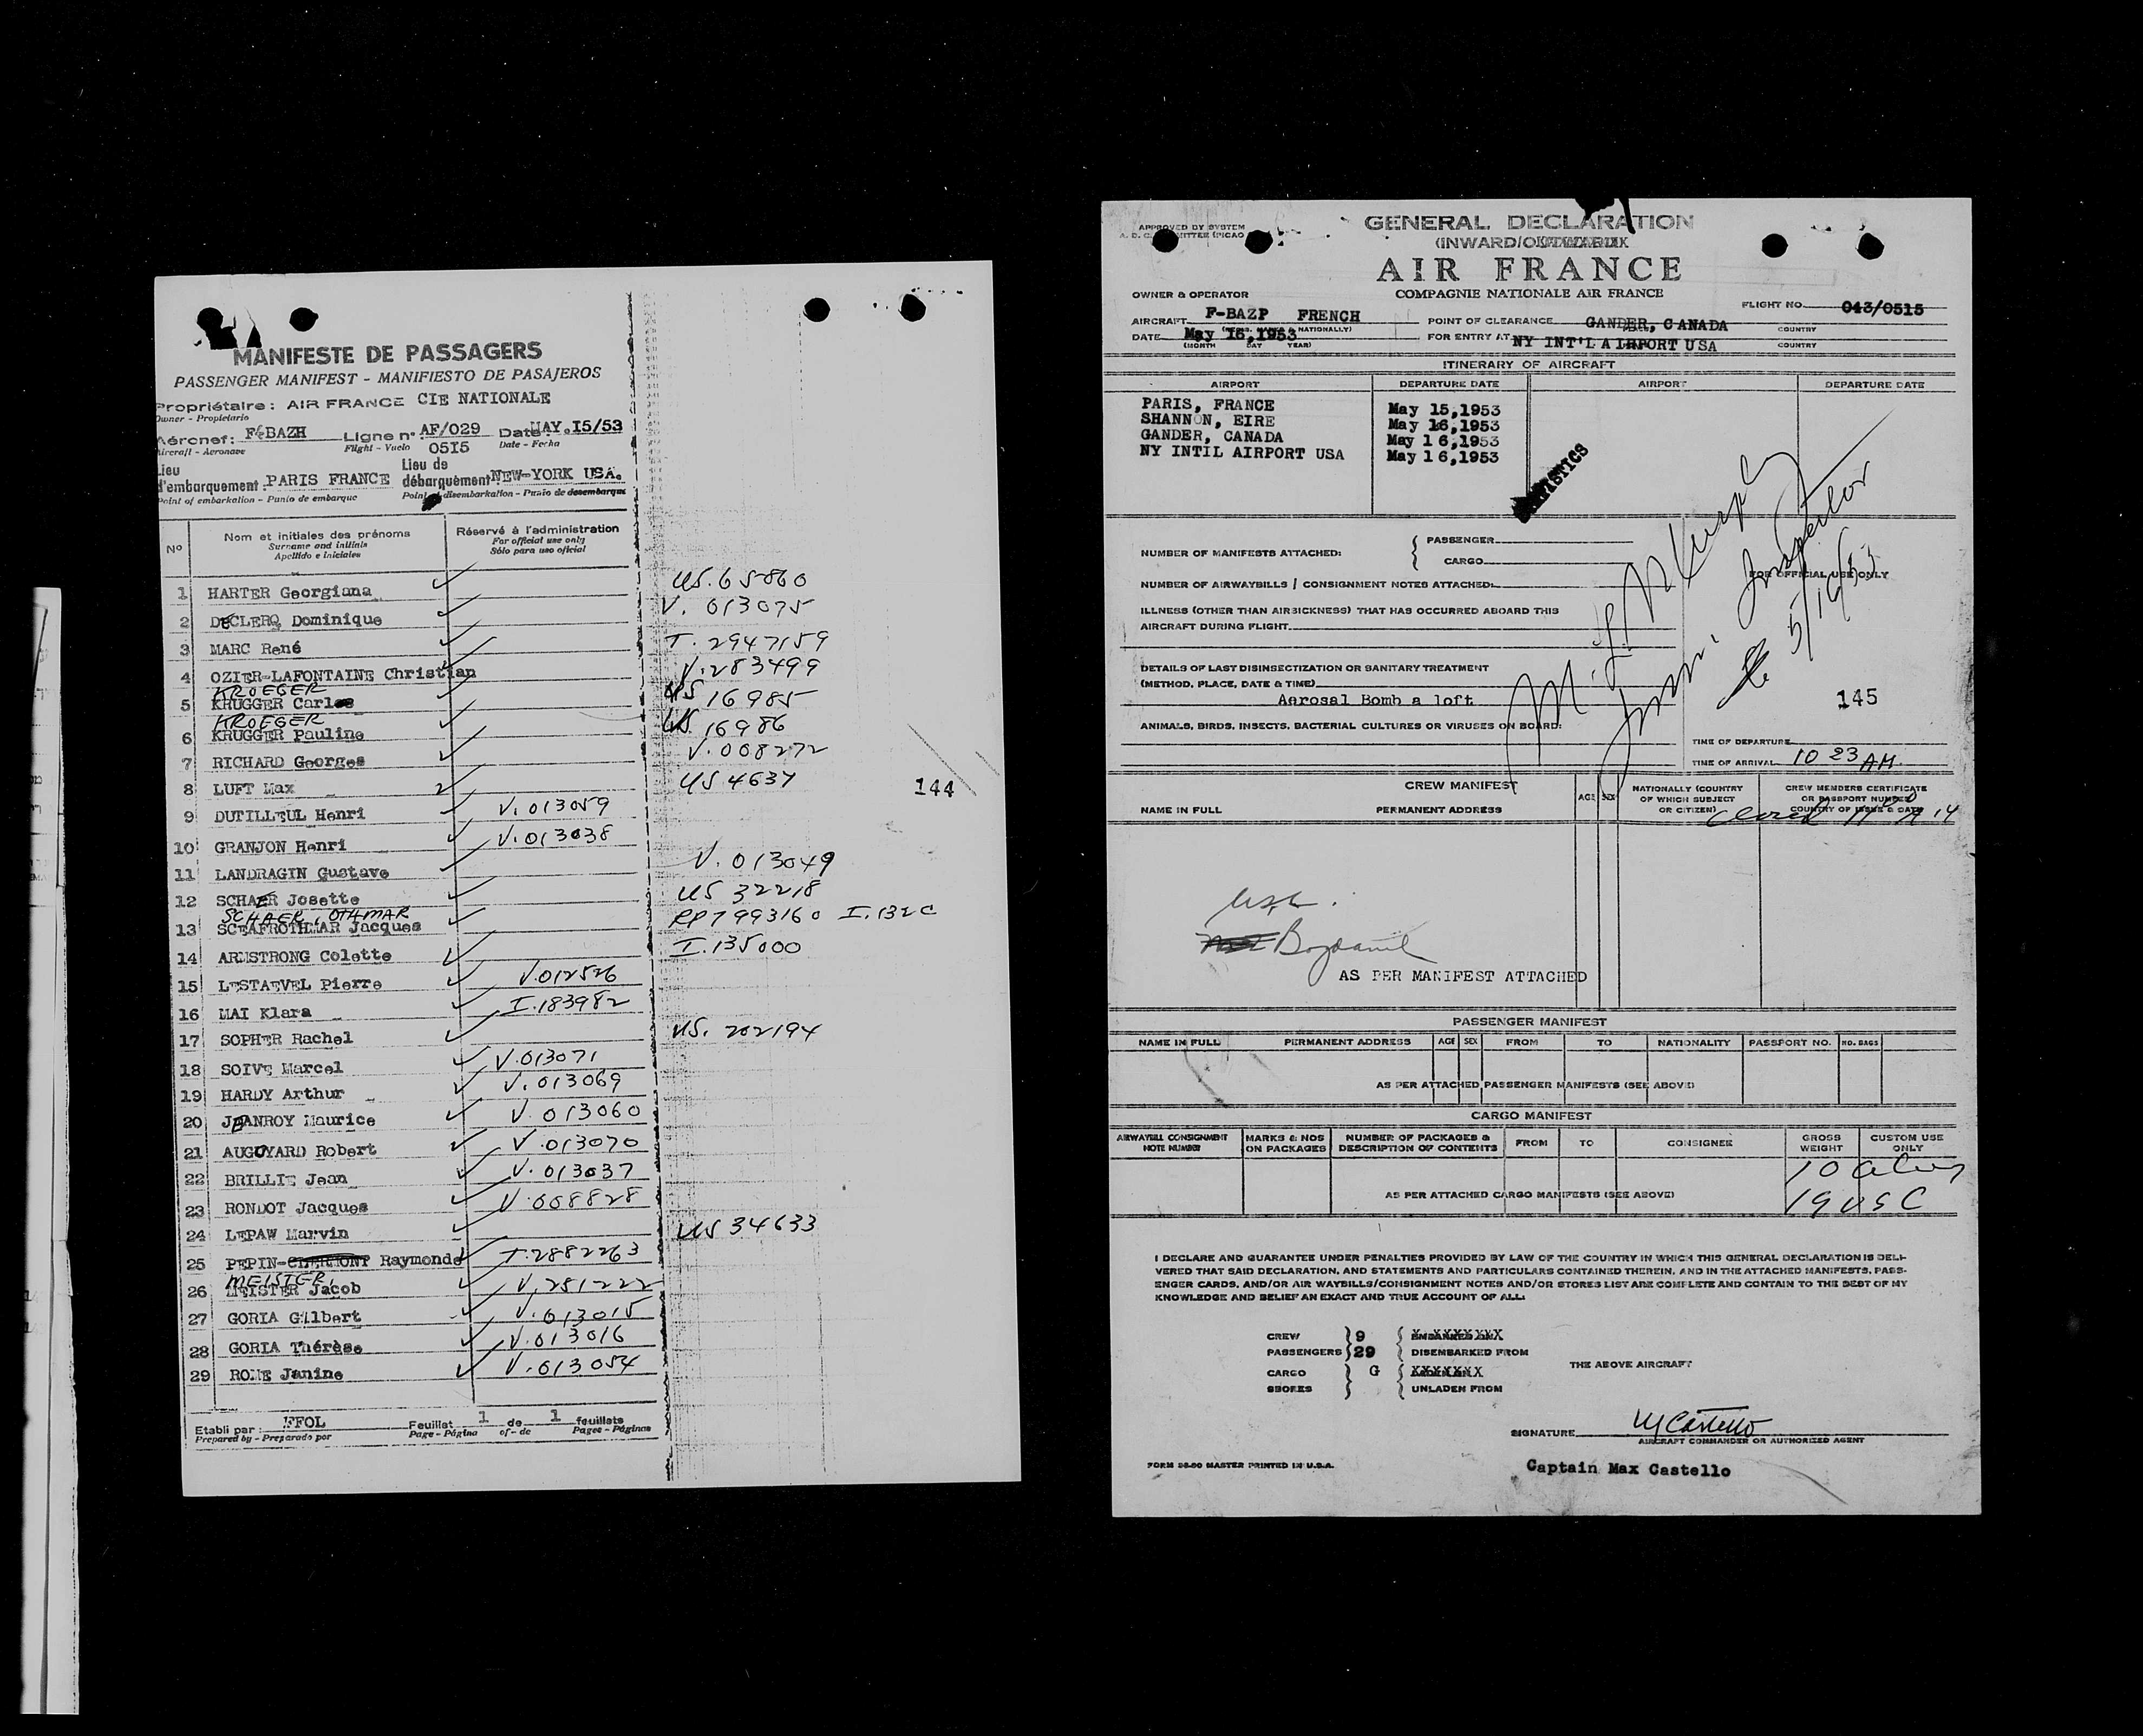 MANIFESTE DE PASSAGERS
PASSENGER MANIFEST - MANIFIESTO DE PASAJEROS
Propriétaire: AIR FRANCE CIE NATIONALE
Owner - Propietario
Aéronef: F-BAZH Ligne n° AF/029 Date: MAY.I5/53
Aircraft - Aeronave Flight - Vuelo 05I5 Date - Fecha
Lieu d'embarquement PARIS FRANCE Lieu de débarquement NEW-YORK USA.
Point of embarkation - Punto de embarque Point of disembarkation - Punto de desembarque
N° Nom et initiales des prénoms Réservé à l'administration
Surname and initials For official use only
Apellido e iniciales Sólo para uso oficial
1 HARTER Georgiana US.65860
2 DECLERQ Dominique V. 013075
3 MARC René T. 2947159
4 OZIER-LAFONTAINE Christian V.283499
KROEGER
5 KRUGGER Carlos US 16985
KROEGER
6 KRUGGER Pauline US. 16986
7 RICHARD Georges V.008272
8 LUFT Max US 4637
144
9 DUTILLEUL Henri V.013059
10 GRANJON Henri V.013038
11 LANDRAGIN Gustave V.013049
12 SCHAER Josette US 32218
SCHAER, OTHMAR
13 SCEAFROTHMAR Jacques PP7993160 I.132C
14 ARMSTRONG Colette I.135000
15 LESTAEVEL Pierre V.012526
16 MAI Klara I.183982
17 SOPHER Rachel US. 202194
18 SOIVE Marcel V.013071
19 HARDY Arthur V.013069
20 JEANROY Maurice V.013060
21 AUGOYARD Robert V.013070
22 BRILLIE Jean V.013037
23 RONDOT Jacques V.008828
24 LEPAW Marvin US 34633
25 PEPIN-CLERMONT Raymonde T.2882263
MEISTER,
26 MEISTER Jacob V.251222
27 GORIA Gilbert V.013015
28 GORIA Thérèse V.013016
29 ROME Janine V.013054
Etabli par: FFOL Feuillet 1 de 1 feuillets
Prepared by - Preparado por Page - Página of - de Pages - Páginas
APPROVED BY SYSTEM
GENERAL DECLARATION
(INWARD/OUTWARD)
AIR FRANCE
COMPAGNIE NATIONALE AIR FRANCE
OWNER & OPERATOR FLIGHT NO. 043/0515
AIRCRAFT F-BAZP FRENCH POINT OF CLEARANCE GANDER, CANADA COUNTRY
DATE May 16,1953 FOR ENTRY AT NY INT'L AIRPORT USA COUNTRY
(MONTH DAY YEAR)
ITINERARY OF AIRCRAFT
AIRPORT DEPARTURE DATE AIRPORT DEPARTURE DATE
PARIS, FRANCE May 15,1953
SHANNON, EIRE May 16,1953
GANDER, CANADA May 16,1953
NY INTIL AIRPORT USA May 16,1953
NUMBER OF MANIFESTS ATTACHED: PASSENGER
CARGO
NUMBER OF AIRWAYBILLS / CONSIGNMENT NOTES ATTACHED:
FOR OFFICIAL USE ONLY
ILLNESS (OTHER THAN AIRSICKNESS) THAT HAS OCCURRED ABOARD THIS
AIRCRAFT DURING FLIGHT
Inspector
5/16/53
DETAILS OF LAST DISINSECTIZATION OR SANITARY TREATMENT
(METHOD, PLACE, DATE & TIME)
Aerosal Bomb a loft
145
ANIMALS, BIRDS, INSECTS, BACTERIAL CULTURES OR VIRUSES ON BOARD:
TIME OF DEPARTURE
TIME OF ARRIVAL 10 23 AM.
CREW MANIFEST
NAME IN FULL PERMANENT ADDRESS AGE SEX NATIONALLY (COUNTRY OF WHICH SUBJECT OR CITIZEN) CREW MEMBERS CERTIFICATE OR PASSPORT NUMBER COUNTRY OF ISSUE & DATE
AS PER MANIFEST ATTACHED
PASSENGER MANIFEST
NAME IN FULL PERMANENT ADDRESS AGE SEX FROM TO NATIONALITY PASSPORT NO. NO. BAGS
AS PER ATTACHED PASSENGER MANIFESTS (SEE ABOVE)
CARGO MANIFEST
AIRWAYBILL CONSIGNMENT NOTE NUMBER MARKS & NOS ON PACKAGES NUMBER OF PACKAGES & DESCRIPTION OF CONTENTS FROM TO CONSIGNEE GROSS WEIGHT CUSTOM USE ONLY
10 aliens
AS PER ATTACHED CARGO MANIFESTS (SEE ABOVE)
19 USC
I DECLARE AND GUARANTEE UNDER PENALTIES PROVIDED BY LAW OF THE COUNTRY IN WHICH THIS GENERAL DECLARATION IS DELI-
VERED THAT SAID DECLARATION, AND STATEMENTS AND PARTICULARS CONTAINED THEREIN, AND IN THE ATTACHED MANIFESTS, PASS-
ENGER CARDS, AND/OR AIR WAYBILLS/CONSIGNMENT NOTES AND/OR STORES LIST ARE COMPLETE AND CONTAIN TO THE BEST OF MY
KNOWLEDGE AND BELIEF AN EXACT AND TRUE ACCOUNT OF ALL:
CREW 9
PASSENGERS 29 DISEMBARKED FROM
THE ABOVE AIRCRAFT
CARGO G
STORES UNLADEN FROM
SIGNATURE M Castello
AIRCRAFT COMMANDER OR AUTHORIZED AGENT
FORM 56-60 MASTER PRINTED IN U.S.A.
Captain Max Castello